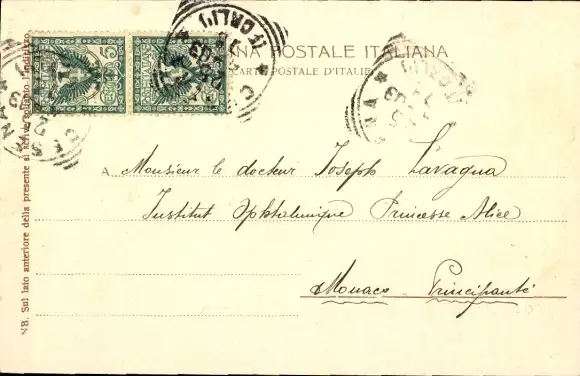 NA POSTALE ITALIANA
(CARTE POSTALE D'ITALIE)
A Monsieur le docteur Joseph Lavagna
Institut Ophtalmique Princesse Alice
Monaco Principauté
NB. Sul lato anteriore della presente si scrive soltanto l'indirizzo.
5
5